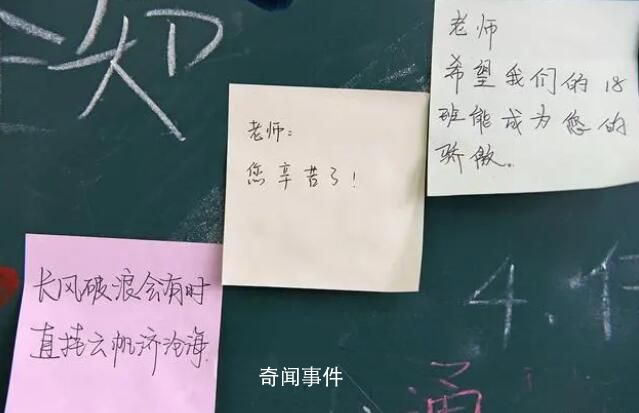 老师
希望我们的18
班能成为您的
骄傲。
老师:
您辛苦了!
长风破浪会有时
直挂云帆济沧海
4.
通
奇闻事件